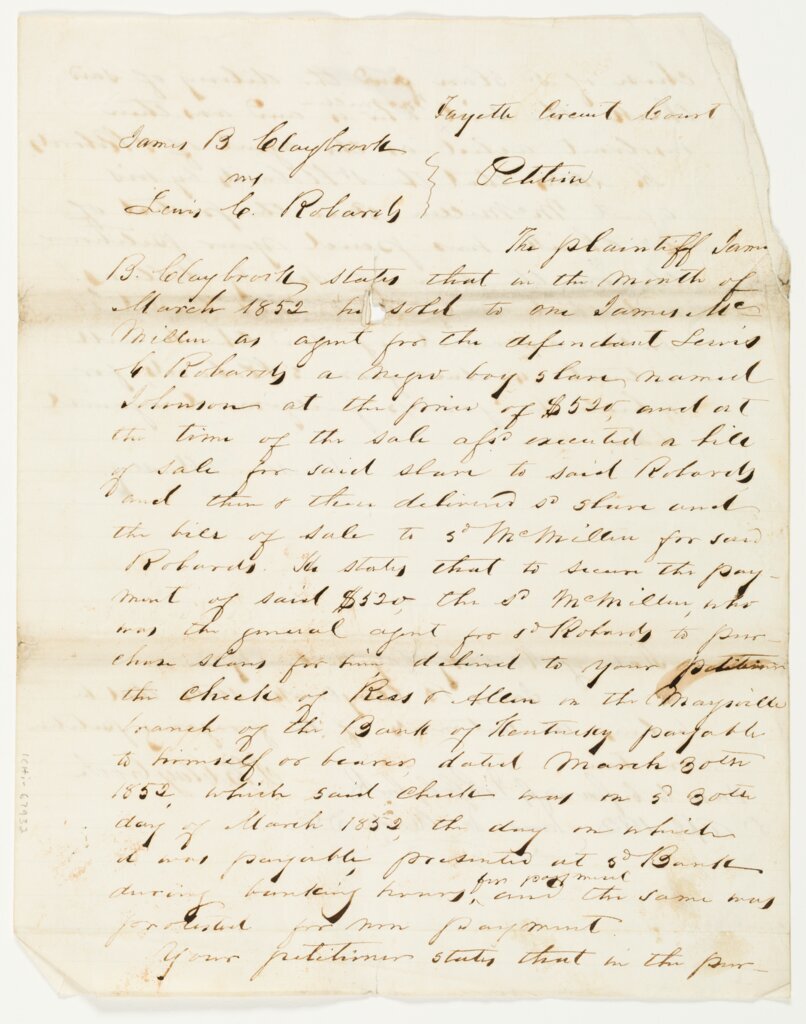 Fayette Circuit Court
James B Claybrook
vs } Petition
Lewis C. Robards
The plaintiff James
B. Claybrook states that in the month of
March 1852 he sold to one James Mc
Millen as agent for the defendant Lewis
C Robards a negro boy slave named
Johnson at the price of $520, and at
the time of the sale afsd executed a bill
of sale for said slave to said Robards
and then & there delivered sd slave and
the bill of sale to sd McMillen for said
Robards. He states that to secure the pay-
ment of said $520 the sd McMillen, who
was the general agent for sd Robards to pur-
chase slaves for him, delivered to your petitioner
the check of Rees & Allen on the Maysville
branch of the Bank of Kentucky payable
to himself or bearer, dated March 30th
1852, which said check was on sd 30th
day of March 1852, the day on which
it was payable, presented at sd Bank
during banking hours, for payment and the same was
protested for non payment.
Your petitioner states that in the pur-
ICHi-67933